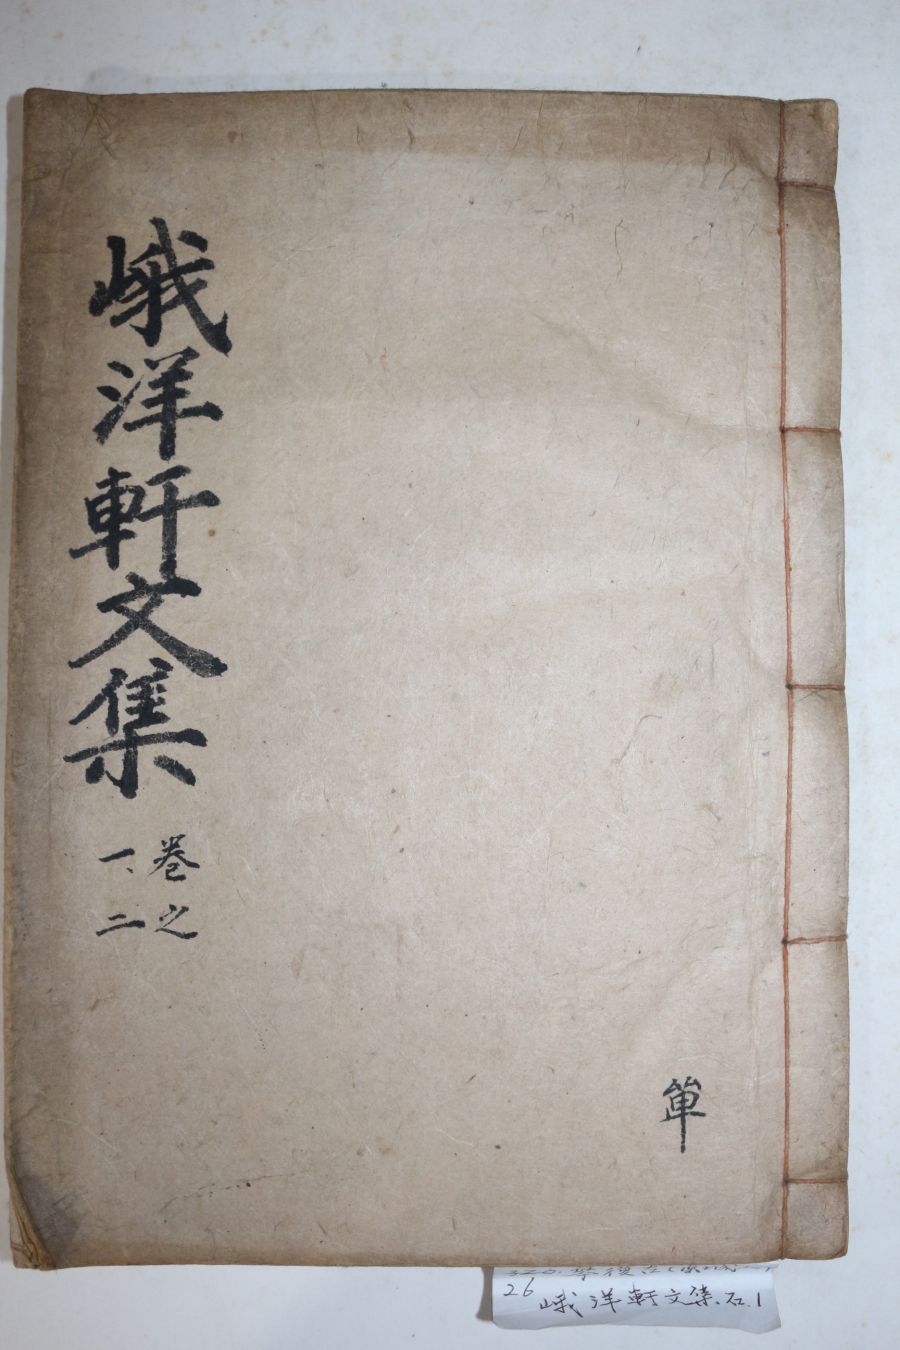 峨洋軒文集
卷之
一、二
單
26
峨洋軒文集.石.1